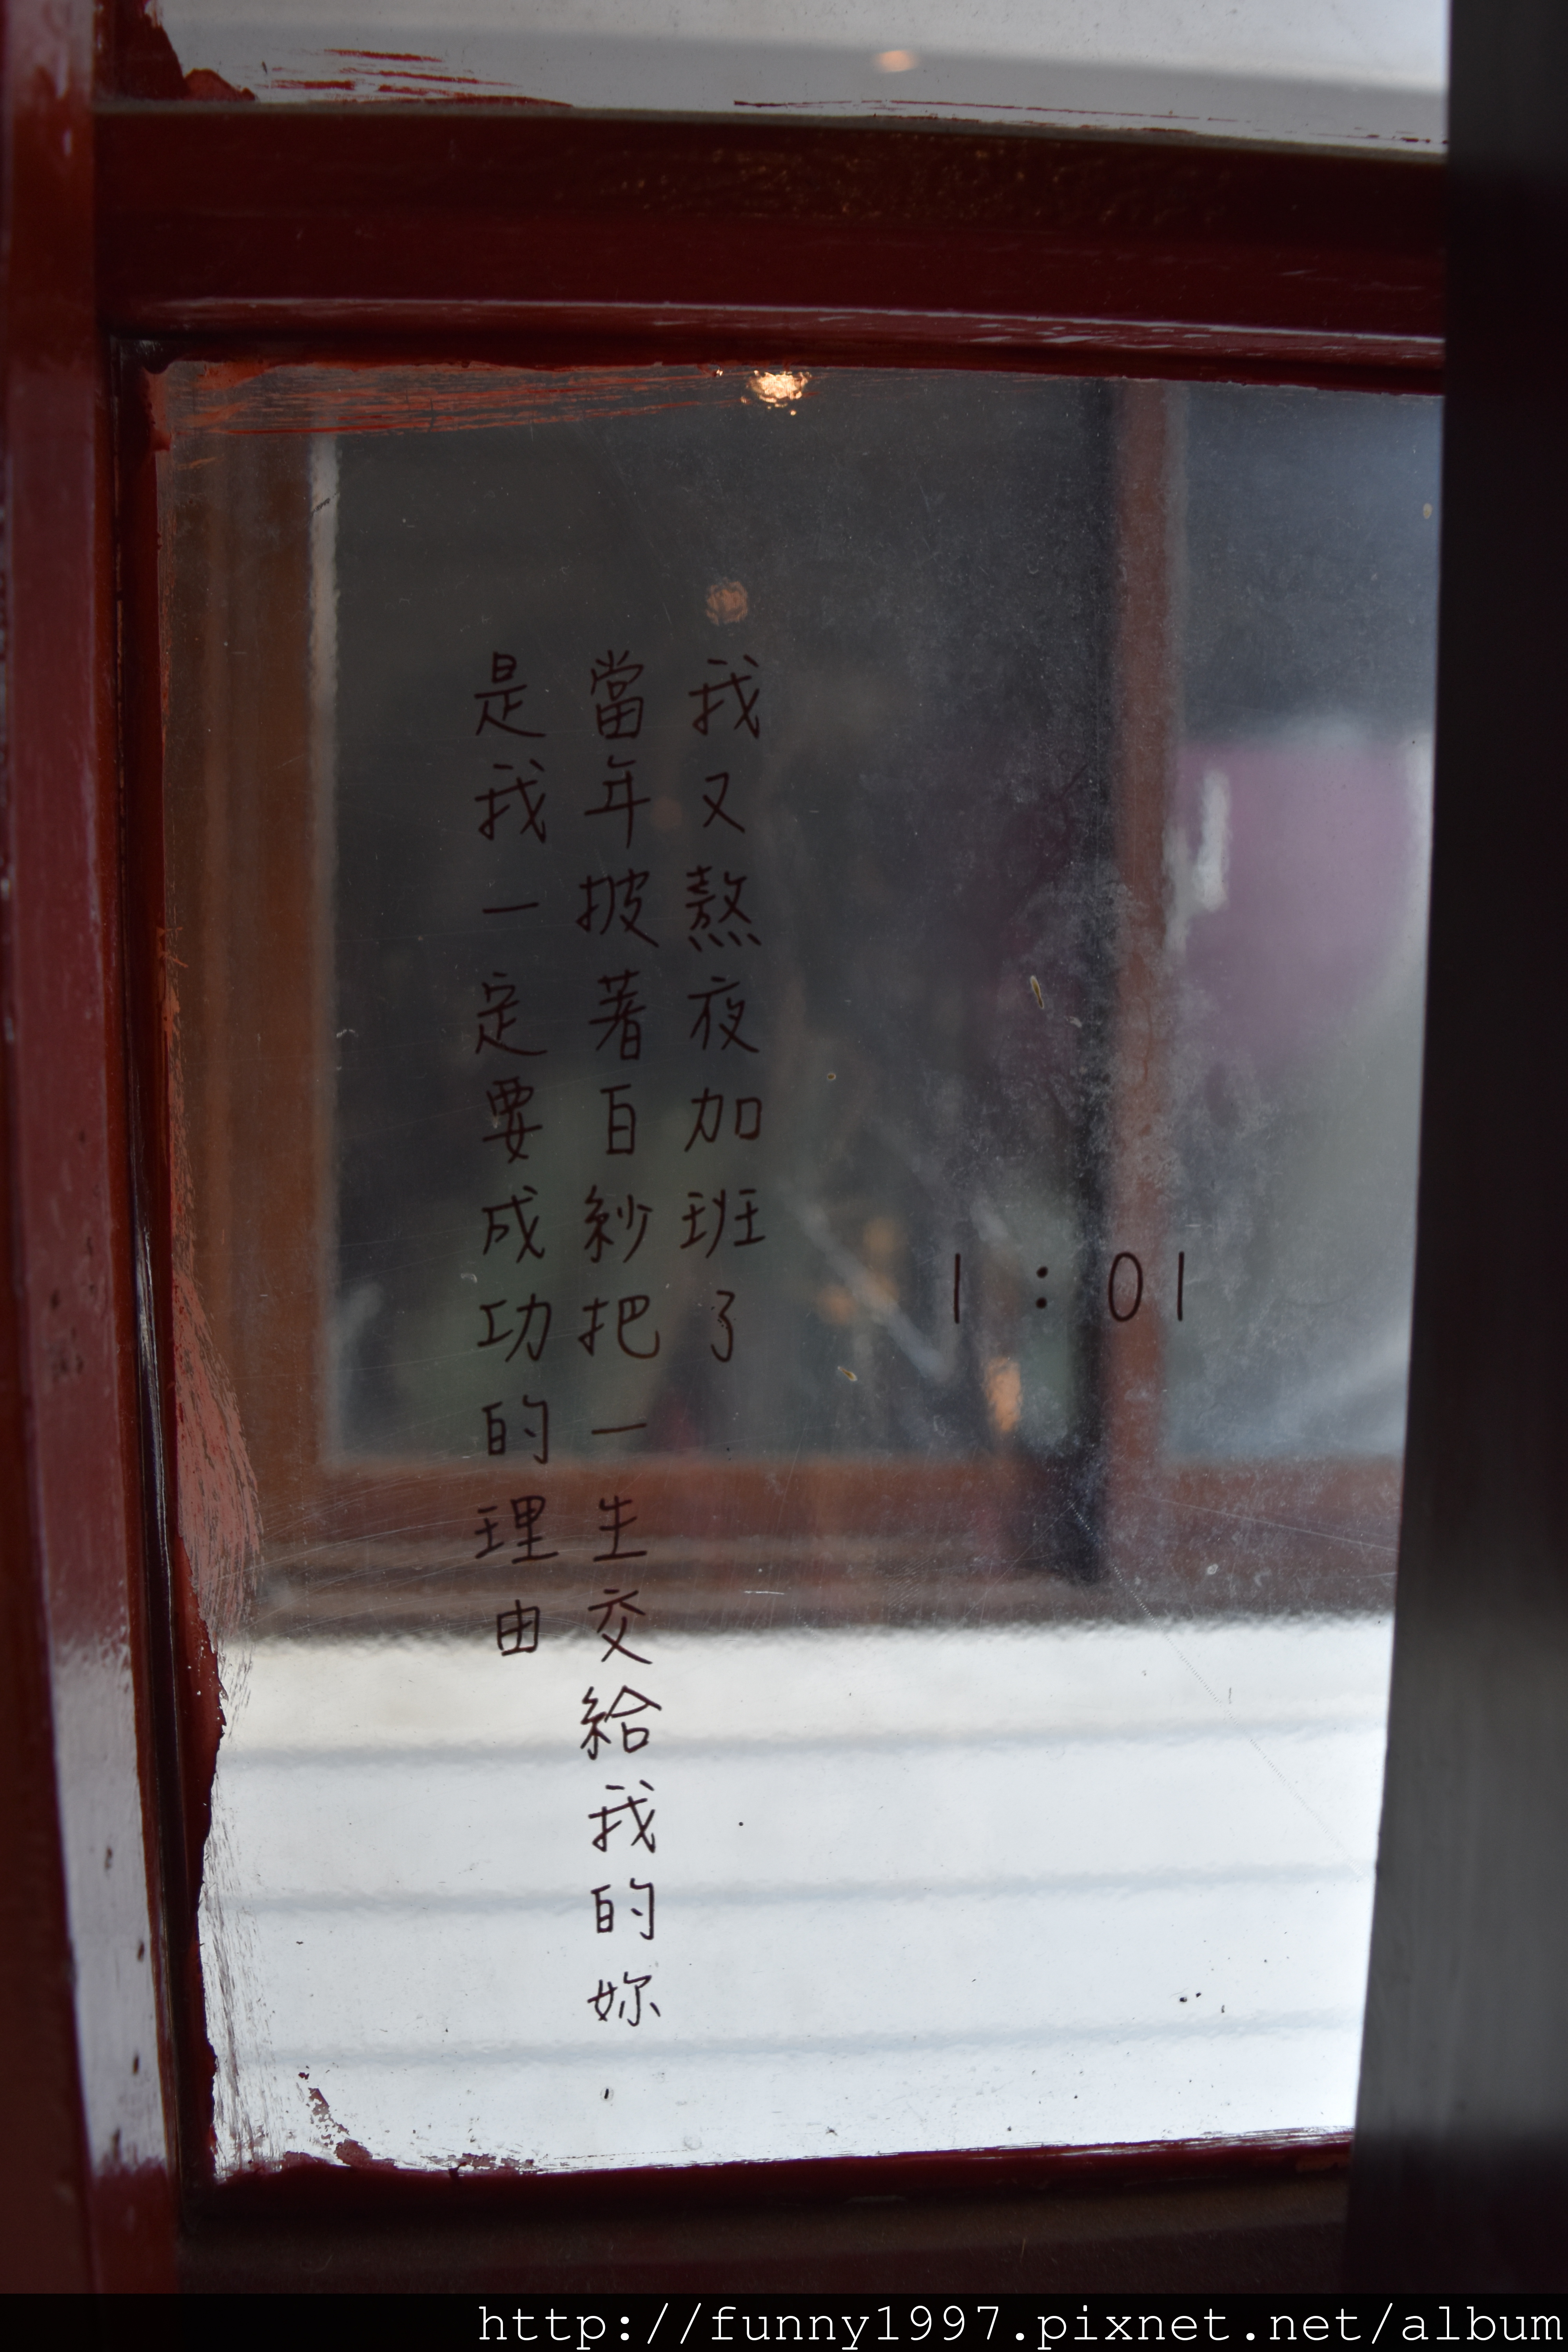 1:01
我又熬夜加班了
當年披著白紗把一生交給我的妳
是我一定要成功的理由
http://funny1997.pixnet.net/album